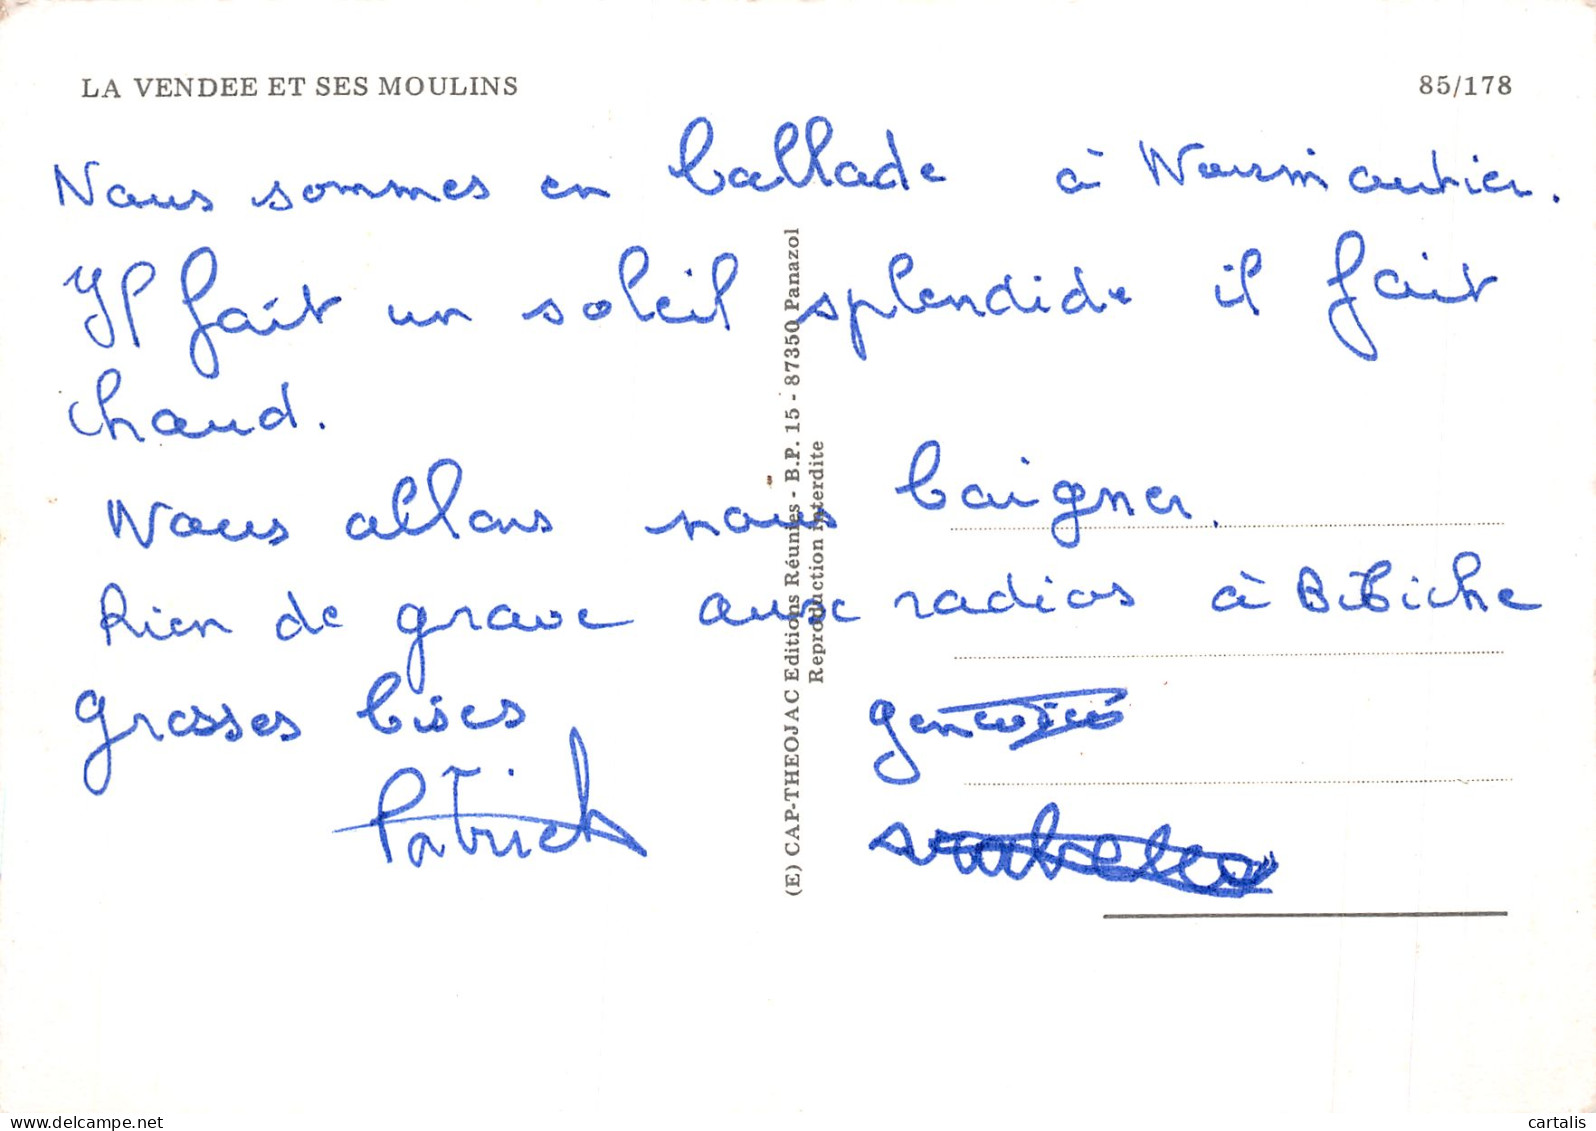 LA VENDEE ET SES MOULINS
85/178
Nous sommes en ballade à Noirmoutier.
Il fait un soleil splendide il fait
chaud.
Nous allons nous baigner.
Rien de grave aux radios à Bibiche
grosses bises
Patrick
(E) CAP-THEOJAC Editions Réunies - B.P. 15 - 87350 Panazol
Reproduction interdite
delcampe.net
cartalis